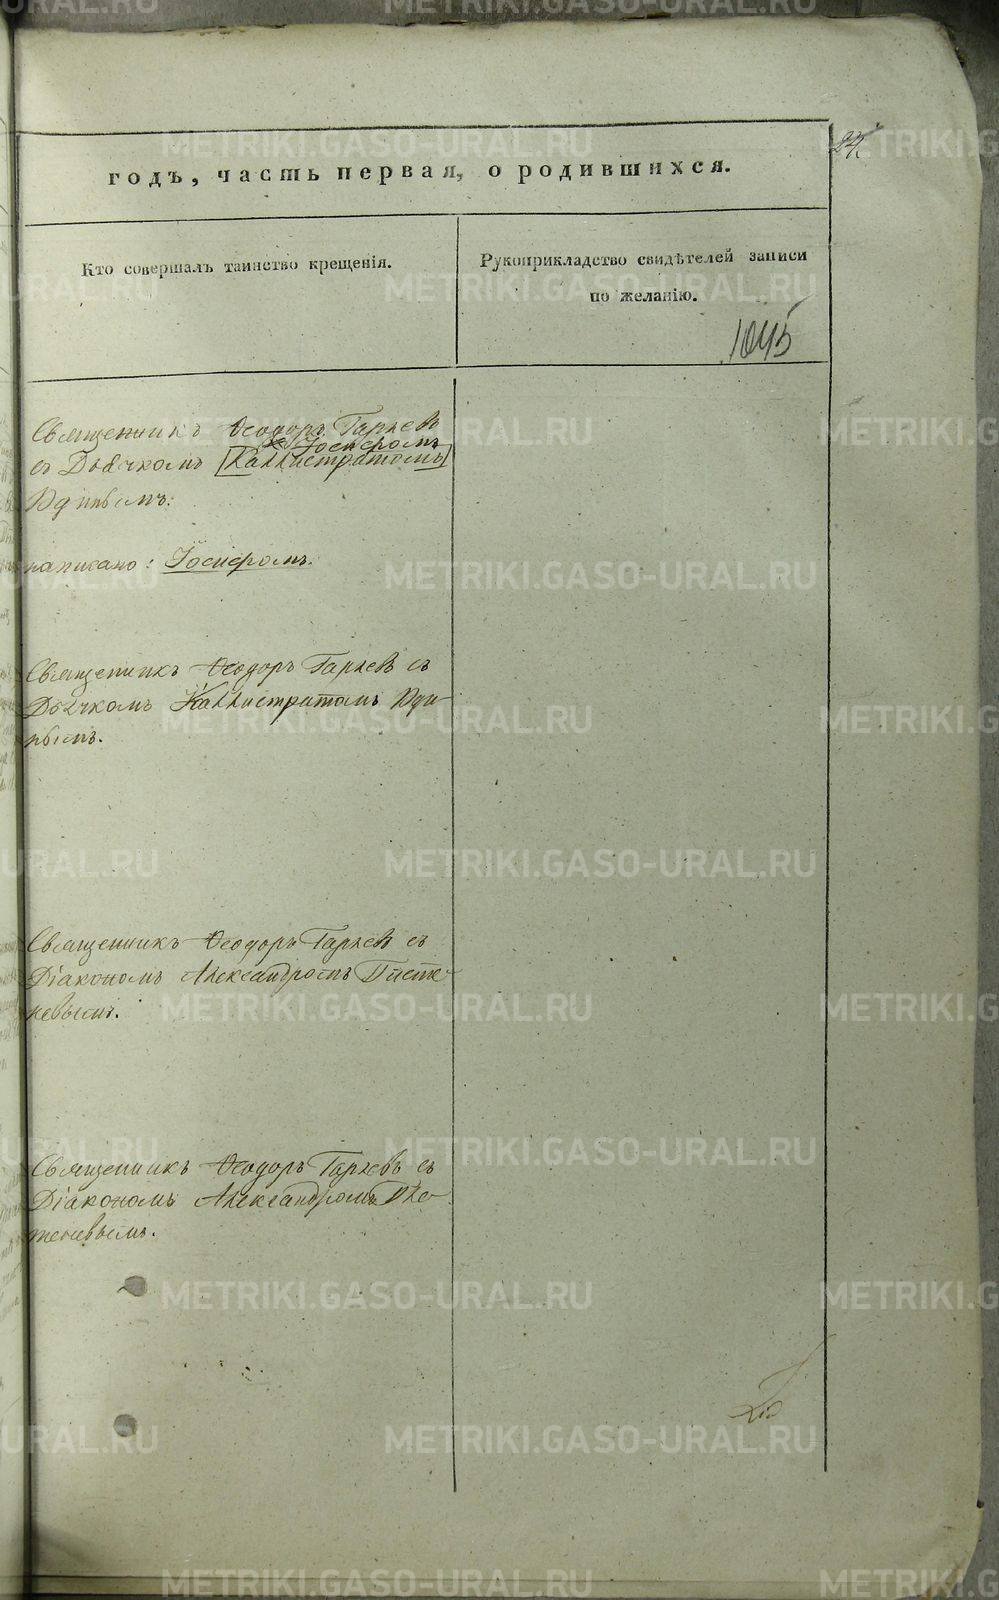 годъ, часть первая, о родившихся.
24.
Кто совершалъ таинство крещенія.
Рукоприкладство свидѣтелей записи
по желанію.
1045
Священникъ Ѳеодоръ Гаряевъ
Іосифомъ
съ Дьячкомъ [Каллистратомъ]
Удинымъ:
написано: Іосифомъ.
Священникъ Ѳеодоръ Гаряевъ съ
Дьячкомъ Каллистратомъ Уди-
нымъ.
Священникъ Ѳеодоръ Гаряевъ съ
Діакономъ Александромъ
Священникъ Ѳеодоръ Гаряевъ съ
Діакономъ Александромъ
METRIKI.GASO-URAL.RU